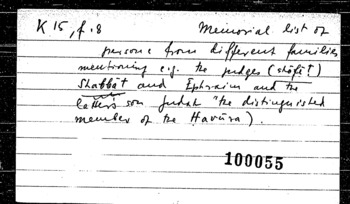 K 15, f. 8 Memorial list of
persons from different families
mentioning e.g. the judges (shōfēṭ)
Shabbāt and Ephraim and the
latter's son Judah "the distinguished
member of the Havūra).
100055